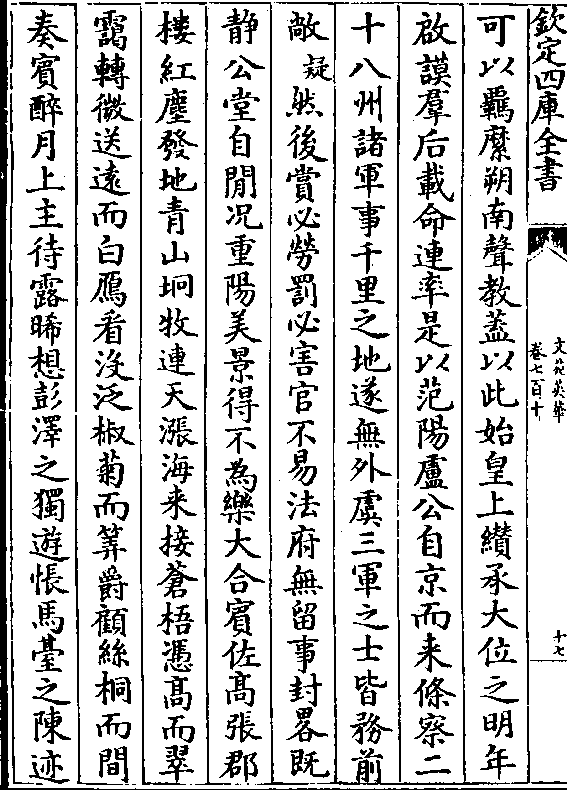 欽定四庫全書
文苑英華
卷七百十
十七
可以羈縻朔南聲教蓋以此始皇上纘承大位之明年
啟謨羣后載命連率是以范陽盧公自京而来條察二
十八州諸軍事千里之地遂無外虞三軍之士皆務前
敵疑然後賞必勞罰必害官不易法府無留事封畧既
静公堂自閒况重陽美景得不為樂大合賓佐髙張郡
樓紅塵發地青山坰牧連天漲海来接蒼梧憑髙而翠
靄轉微送遠而白鴈看没泛椒菊而筭爵顧絲桐而間
奏賓醉月上主待露晞想彭澤之獨遊悵馬臺之陳迹